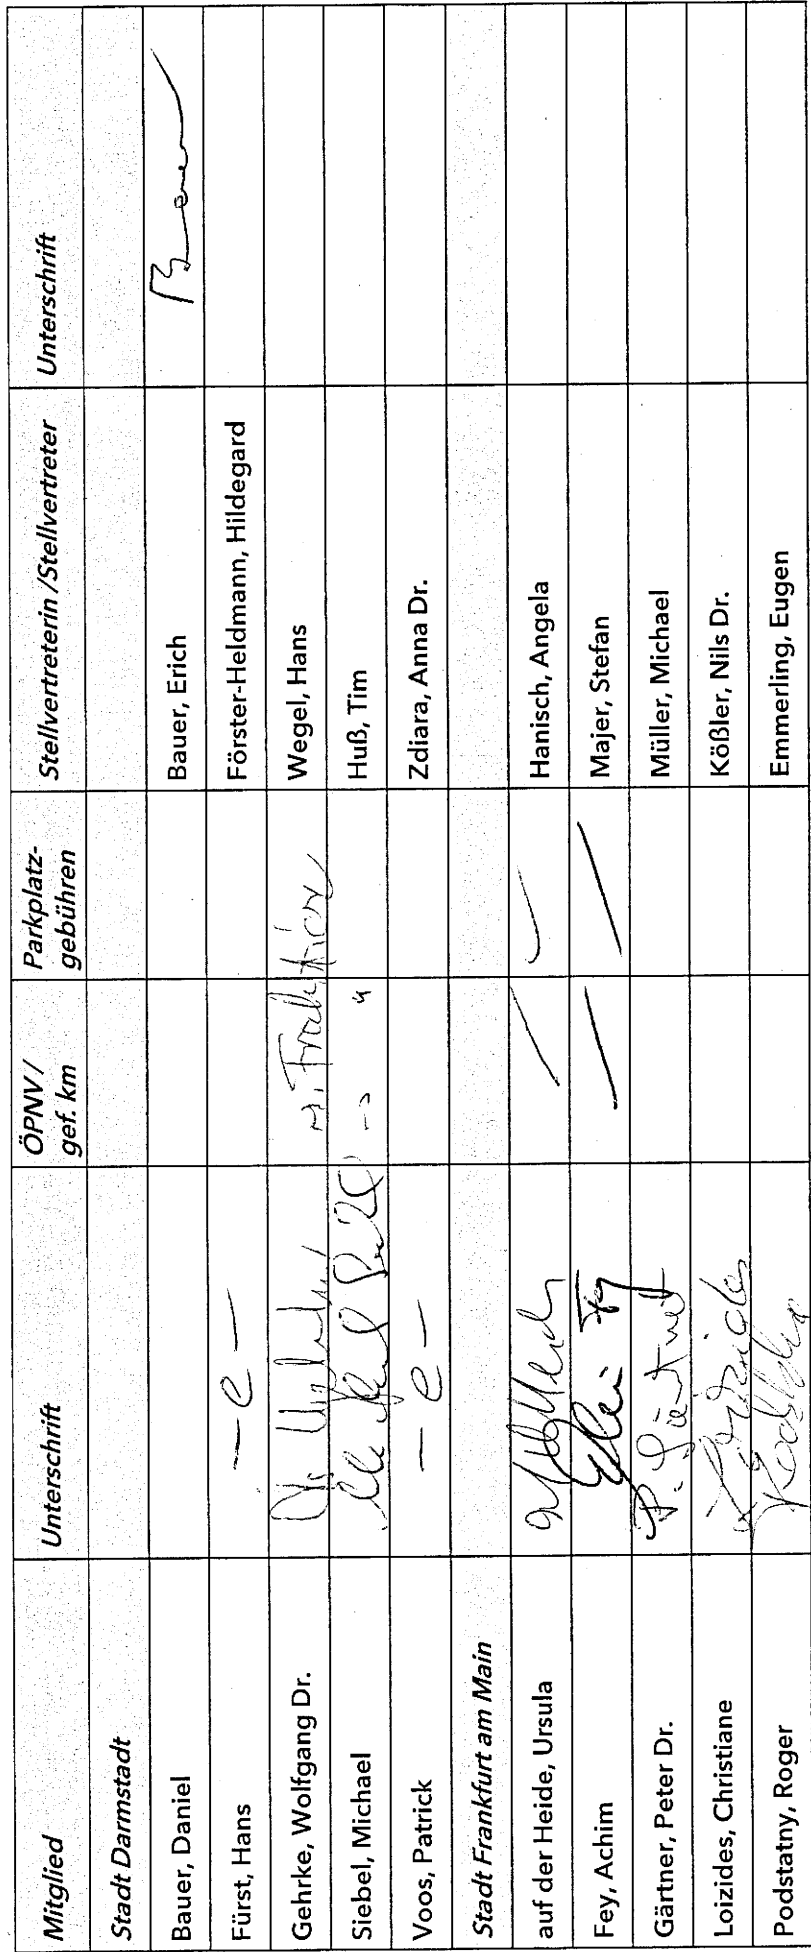 Mitglied Unterschrift ÖPNV / gef. km Parkplatz-gebühren Stellvertreterin /Stellvertreter Unterschrift
Stadt Darmstadt
Bauer, Daniel Bauer, Erich Bauer
Fürst, Hans — e — Förster-Heldmann, Hildegard
Gehrke, Wolfgang Dr. Wegel, Hans
Siebel, Michael Huß, Tim
Voos, Patrick — e — Zdiara, Anna Dr.
Stadt Frankfurt am Main
auf der Heide, Ursula Hanisch, Angela
Fey, Achim Fey Majer, Stefan
Gärtner, Peter Dr. P. Gärtner Müller, Michael
Loizides, Christiane Loizides Kößler, Nils Dr.
Podstatny, Roger Emmerling, Eugen